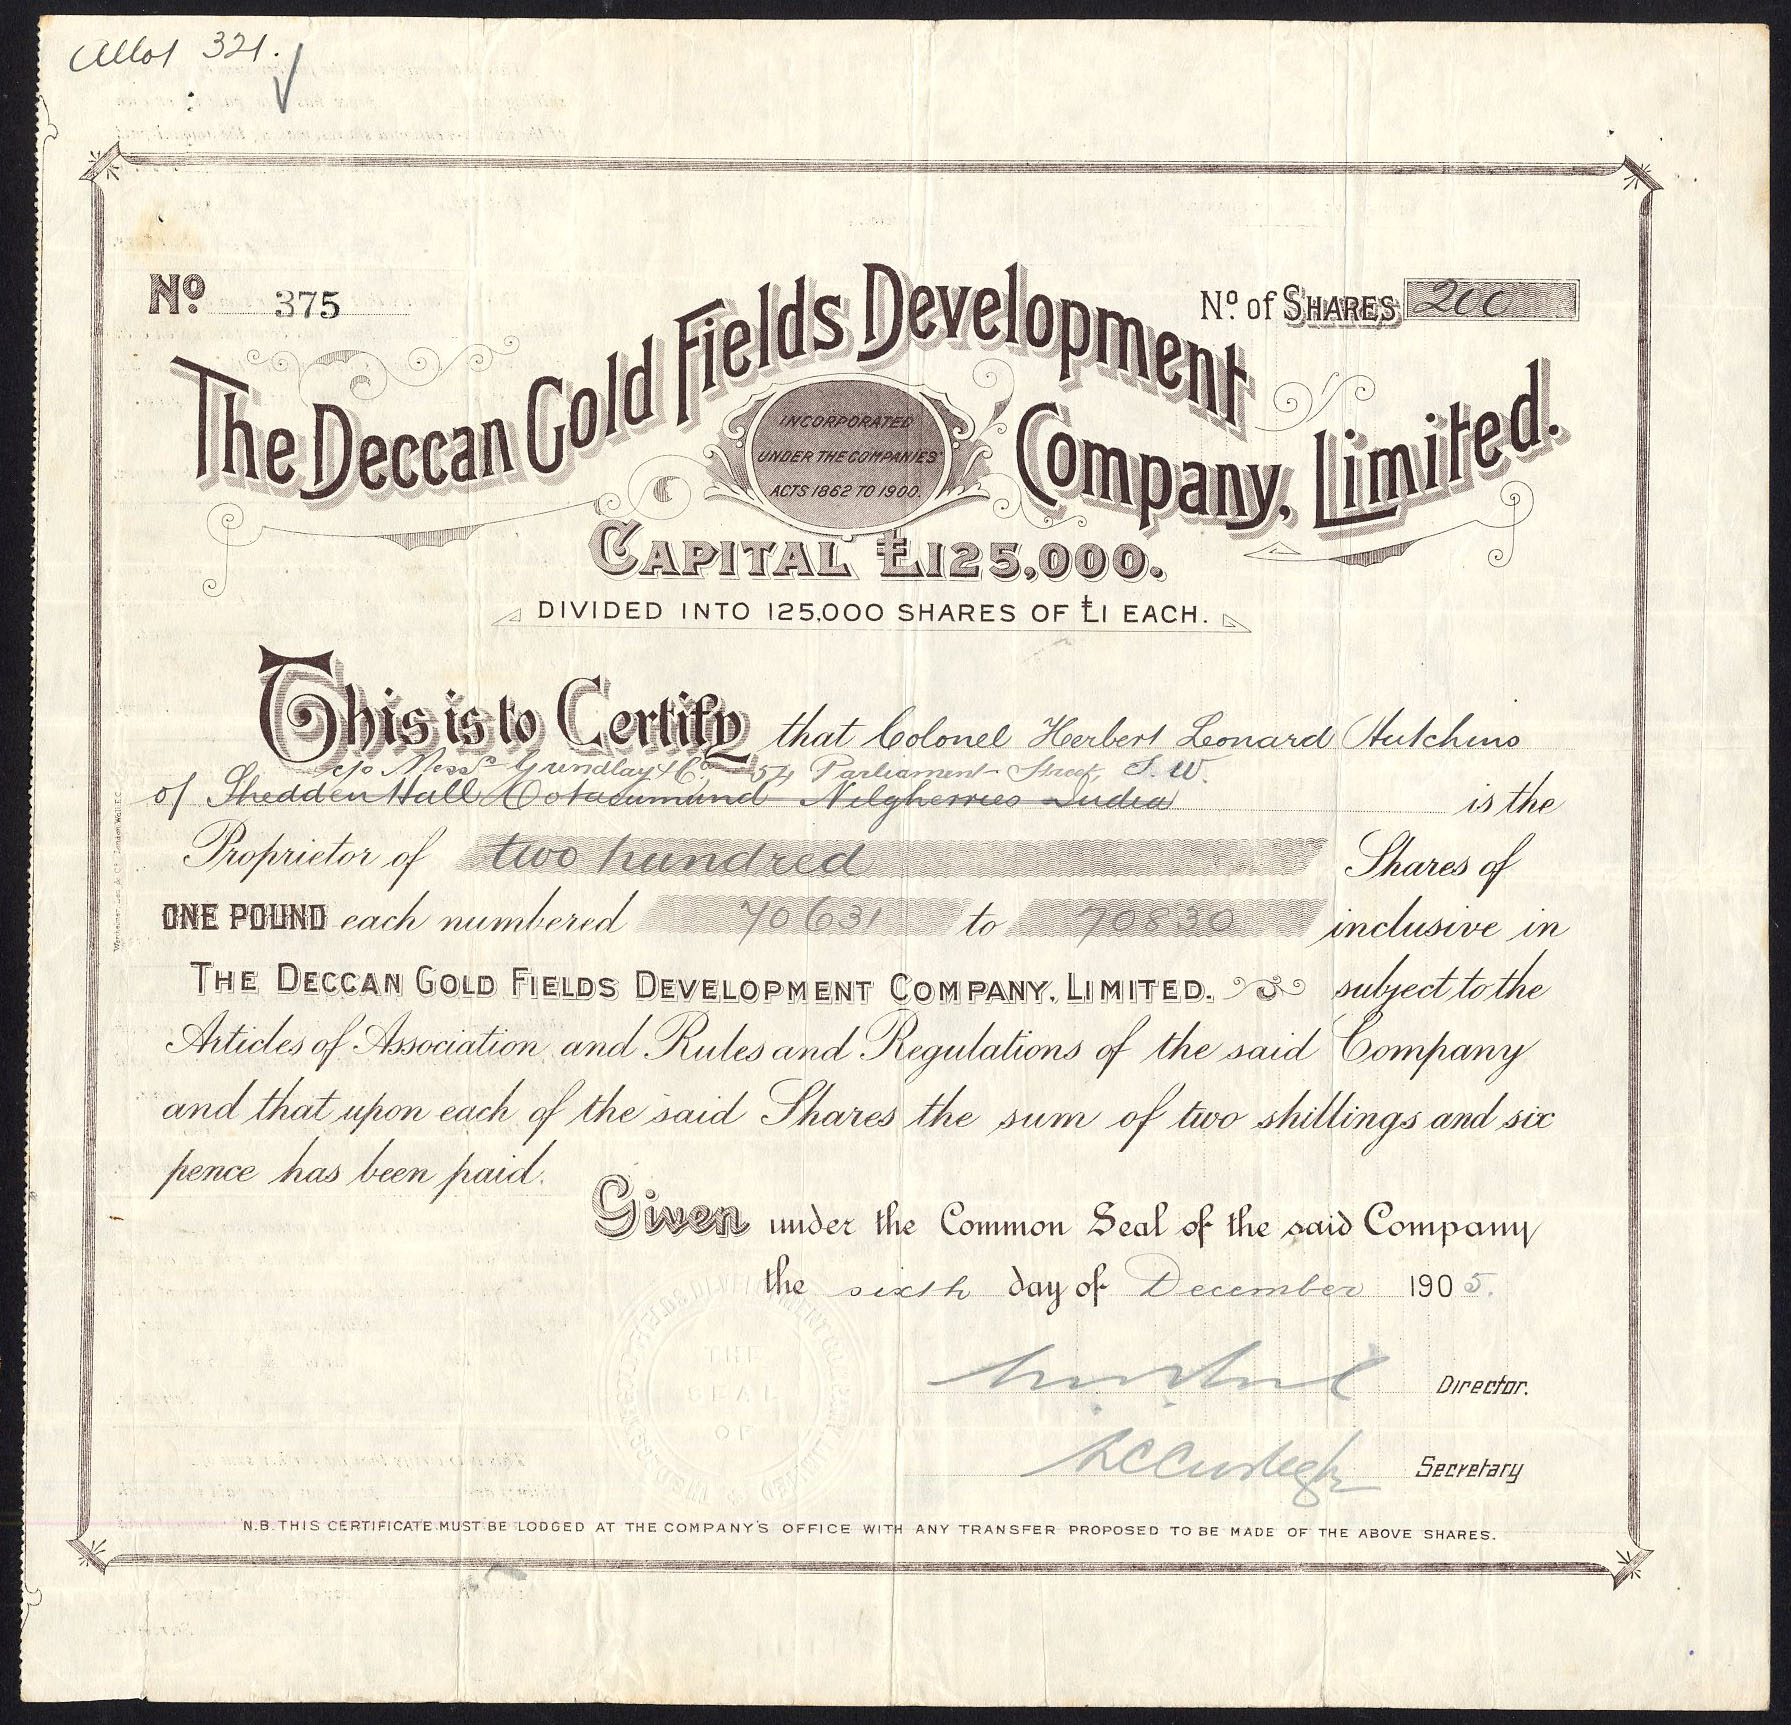 Allot 321.
No. 375
No. of SHARES 200
The Deccan Gold Fields Development Company, Limited.
INCORPORATED
UNDER THE COMPANIES'
ACTS 1862 TO 1900.
CAPITAL £125,000.
DIVIDED INTO 125,000 SHARES OF £1 EACH.
This is to Certify that Colonel Herbert Leonard Hutchins
c/o Messrs Grindlay & Co. 54 Parliament Street, S.W.
of Shedden Hall Ootacamund Nilgherries India is the
Proprietor of two hundred Shares of
ONE POUND each numbered 70631 to 70830 inclusive in
THE DECCAN GOLD FIELDS DEVELOPMENT COMPANY, LIMITED. subject to the
Articles of Association and Rules and Regulations of the said Company
and that upon each of the said Shares the sum of two shillings and six
pence has been paid.
Given under the Common Seal of the said Company
the sixth day of December 1905.
THE
SEAL
OF
Director.
Secretary
N.B. THIS CERTIFICATE MUST BE LODGED AT THE COMPANY'S OFFICE WITH ANY TRANSFER PROPOSED TO BE MADE OF THE ABOVE SHARES.